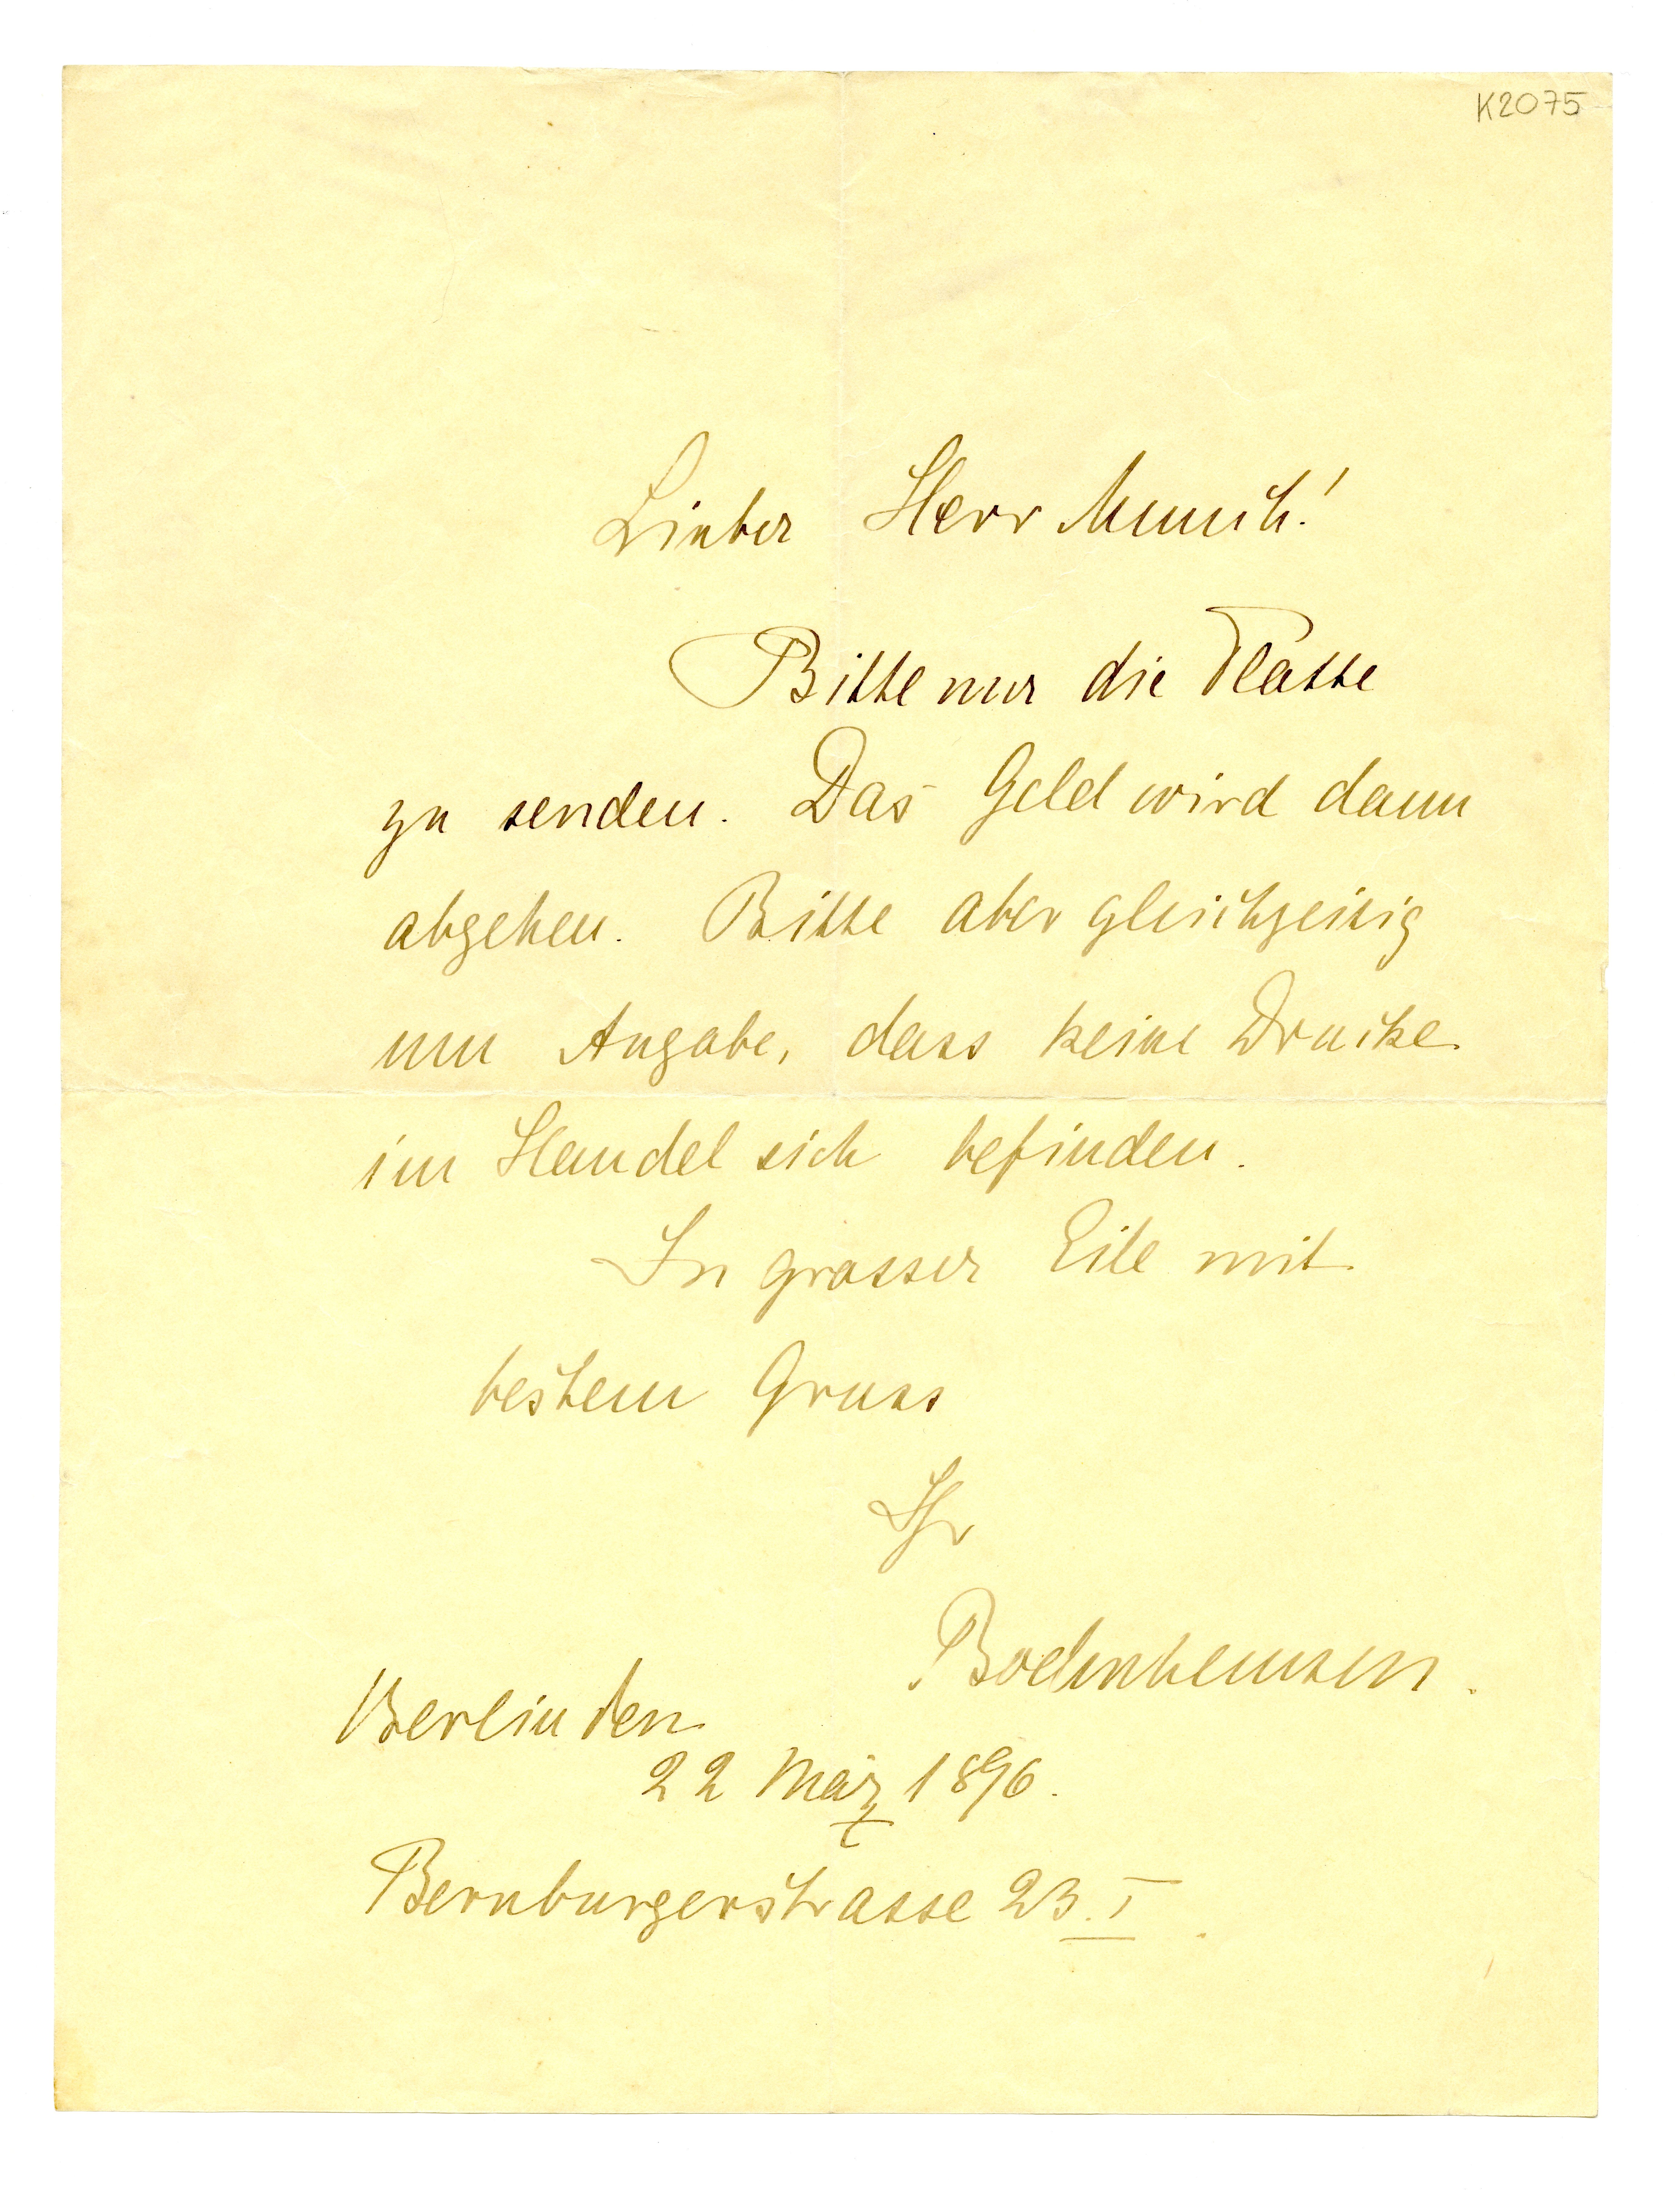 K2075
Lieber Herr Munch!
Bitte nur die Platte
zu senden. Das Geld wird dann
abgehen. Bitte aber gleichzeitig
um Angabe, dass keine Drucke
im Handel sich befinden.
In grosser Eile mit
bestem Gruss
Ihr
Bodenhausen.
Berlin den
22 März 1896.
Bernburgerstrasse 23.I.